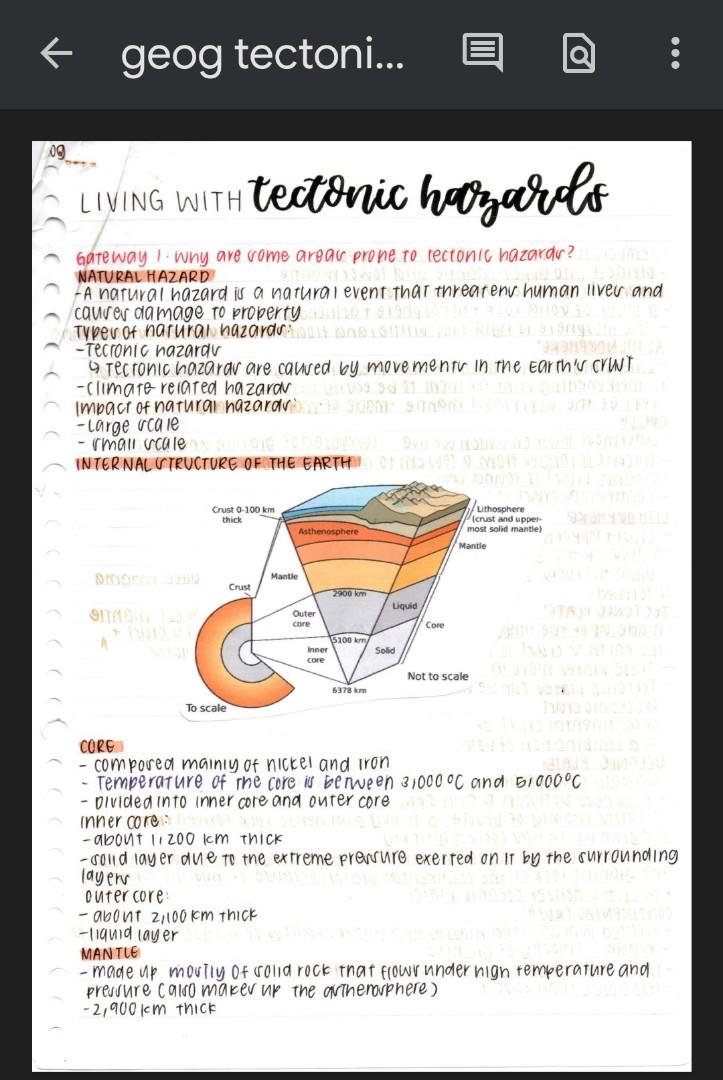 geog tectoni...
LIVING WITH tectonic hazards
Gateway 1: Why are some areas prone to tectonic hazards?
NATURAL HAZARD
-A natural hazard is a natural event that threatens human lives and
causes damage to property
Types of natural hazards:
-Tectonic hazards
↳ Tectonic hazards are caused by movements in the Earth's crust
-Climate-related hazards
Impact of natural hazards:
-Large scale
- Small scale
INTERNAL STRUCTURE OF THE EARTH
Crust 0-100 km
thick
Asthenosphere
Lithosphere
(crust and upper-
most solid mantle)
Mantle
Mantle
Crust
2900 km
Outer
core
Liquid
Core
5100 km
Inner
core
Solid
Not to scale
6378 km
To scale
CORE
- composed mainly of nickel and iron
- Temperature of the core is between 3,000°C and 5,000°C
- Divided into inner core and outer core
Inner core:
-about 1,200 km thick
-solid layer due to the extreme pressure exerted on it by the surrounding
layers
outer core:
- about 2,100 km thick
-liquid layer
MANTLE
- made up mostly of solid rock that flows under high temperature and
pressure (also makes up the asthenosphere)
-2,900 km thick